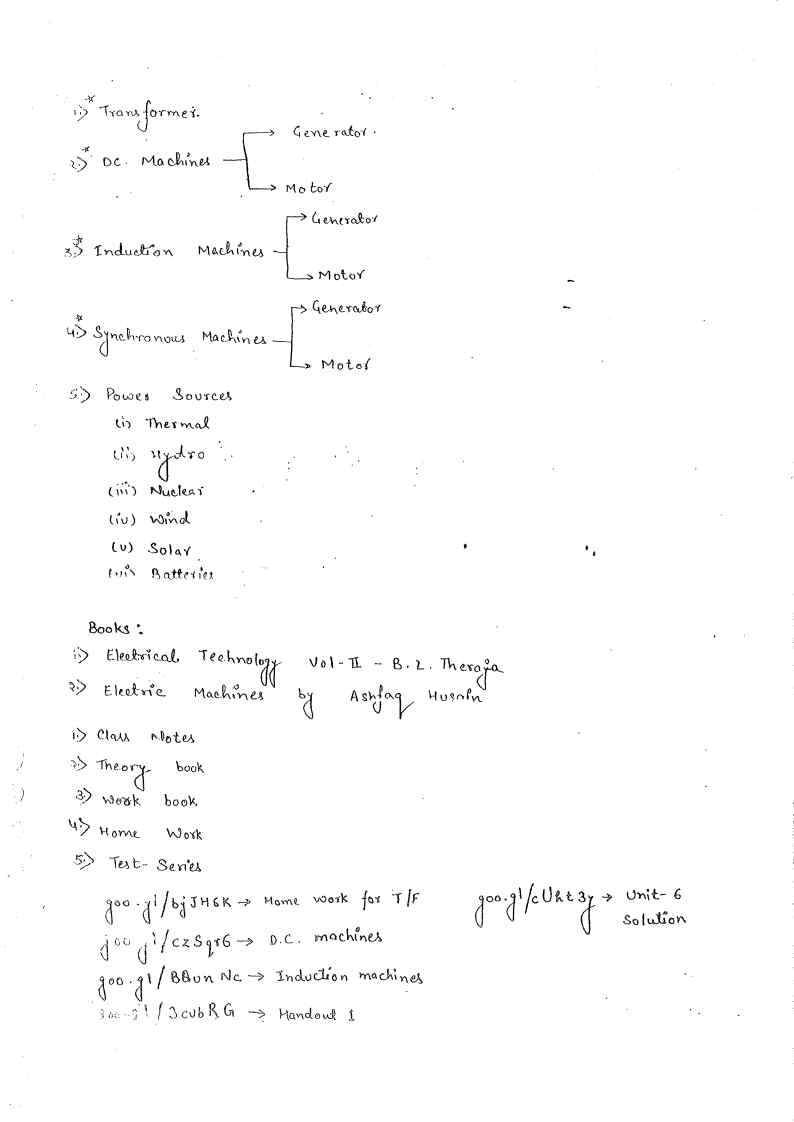 1.) * Transformer.
→ Generator.
2.) * DC. Machines
→ Motor
→ Generator
3.) * Induction Machines
→ Motor
→ Generator
4.) * Synchronous Machines
→ Motor
5.) Power Sources
(i) Thermal
(ii) Hydro
(iii) Nuclear
(iv) Wind
(v) Solar
(vi) Batteries
Books :
1.) Electrical Technology Vol-II - B.L. Theraja
2.) Electric Machines by Ashfaq Husain
1.) Class Notes
2.) Theory book
3.) Work book
4.) Home Work
5.) Test-Series
goo.gl/bjJH6K → Home work for T/F
goo.gl/cUht3y → Unit-6 Solution
goo.gl/czSqr6 → D.C. machines
goo.gl/BBunNc → Induction machines
goo.gl/3cubRG → Handout 1